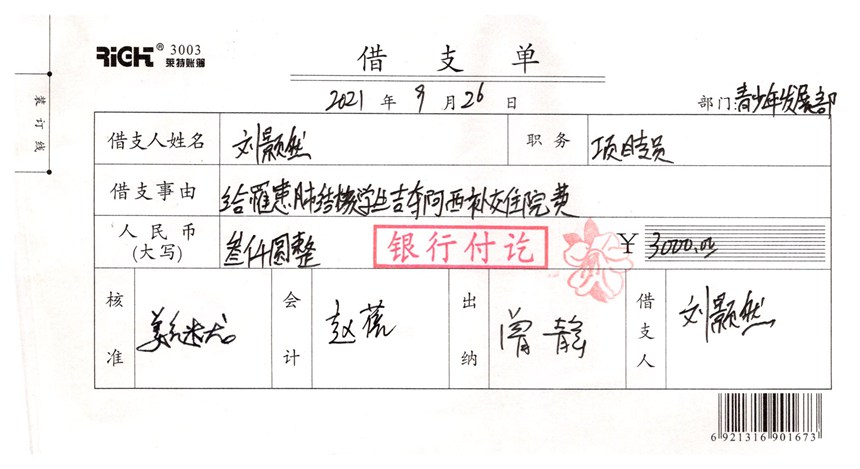 RiGHT® 3003
莱特账簿
借支单
2021年9月26日
部门:青少年发展部
装订线
借支人姓名 刘颢然 职务 项目专员
借支事由 给罹患肺结核学生吉夺阿西补交住院费
人民币(大写) 叁仟圆整 银行付讫 ¥ 3000.00
核准 会计 赵蓓 出纳 曾静 借支人 刘颢然
6 921316 901673